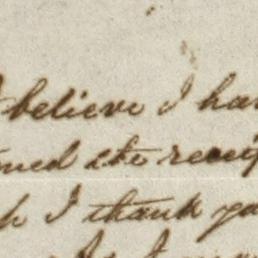 I believe I hav
ned the receip
h I thank yo